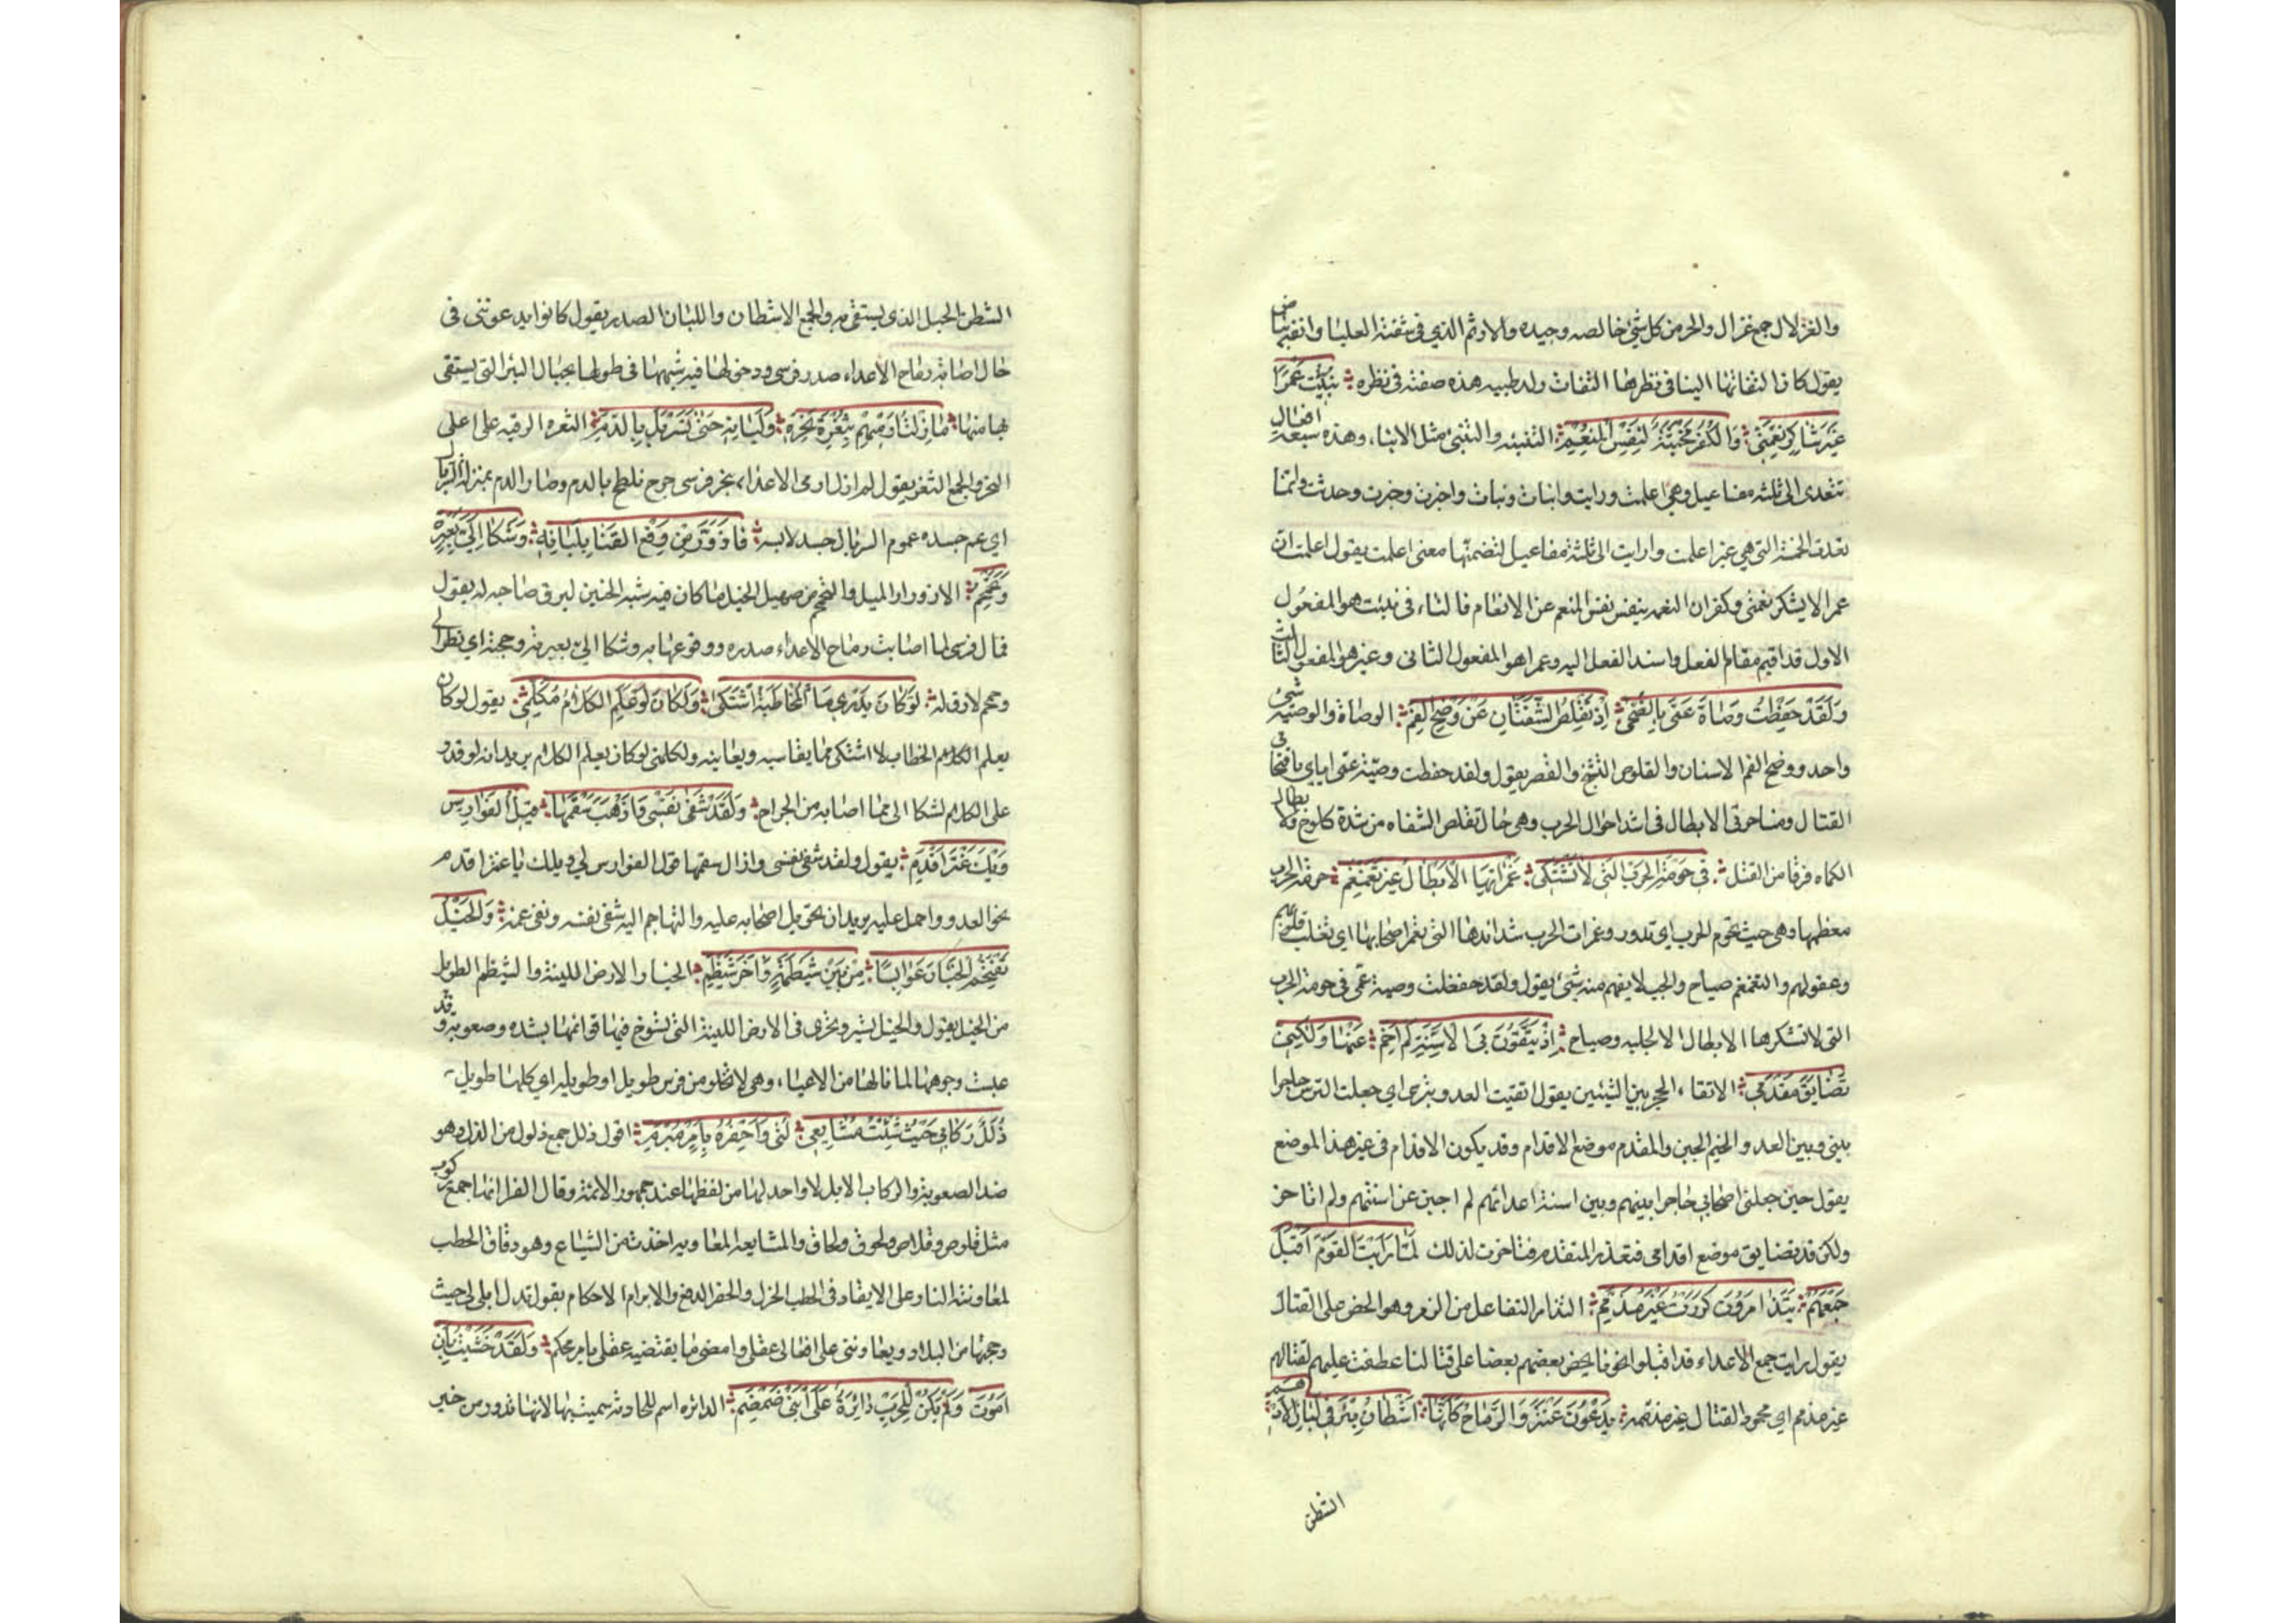 والغزلان جمع غزال والحر من كل شئ خالصه وجيده والارثم الذي في شفته العليا وانفه بياض
يقول كان التفاتها الينا في نظرها التفات ولد ظبيه هذه صفته في نظره نُبِّئْت عَمْرًا
غَيْرَ شَاكِرِ نِعْمَتِى وَالكُفْرُ مَخْبَثَةٌ لِنَفْسِ المُنْعِمِ التنبئه والتنبئ مثل الانباء وهذه سبعة افعال
تتعدى الى ثلثه مفاعيل وهي اعلمت ورايت وانبات ونبات واخبرت وخبرت وحدثت وانما
تعدت الخمسة التي هي غير اعلمت وارايت الى ثلثة مفاعيل لتضمنها معنى اعلمت يقول اعلمت ان
عمرا لا يشكر نعمتى وكفران النعمه ينفس نفس المنعم عن الانعام فالتاء في نبئت هو المفعول
الاول قد اقيم مقام الفاعل واسند الفعل اليه وعمرا هو المفعول الثانى وغير هو المفعول الثالث
وَلَقَدْ حَفِظْتُ وَصَاةَ عَمّى بِالضُّحَى اِذ تَقْلِصُ الشَّفَتَانِ عَنْ وَضَحِ الفَمِ الوصاة والوصيه شئ
واحد ووضح الفم الاسنان والقلوص التشنج والقصر يقول ولقد حفظت وصيّة عمى اياي باقتحامى
القتال ومناجزتى الابطال في اشد احوال الحرب وهي حال تقلص الشفاه من شدة كلوح الابطال
الكماه فرقا من القتل في حَوْمَةِ الحَرْبِ التى لا تَشْتَكِى غَمَرَاتِهَا الاَبْطَالُ غَيْرَ تَغَمْغُمِ حومة الحرب
معظمها وهي حيث تحوم الحرب اي تدور وغمرات الحرب شدائدها التى تغمر اصحابها اي تغلب قلوبهم
وعقولهم والتغمغم صياح والجب لا يفهم منه شئ يقول ولقد حفظت وصية عمى في حومة الحرب
التى لا تشكرها الابطال الا بجلبه وصياح اِذْ يَتَّقُونَ بِىَ الاَسِنَّةَ لَم اَخِمْ عَنْهَا وَلَكِنّى
تَضَايَقَ مَقْدَمى الاتقاء الحجز بين الشيئين يقول اتقيت العدو بترسى اي جعلت الترس حاجزا
بينى وبين العدو والخيم الجبن والمقدم موضع الاقدام وقد يكون الاقدام في غير هذا الموضع
يقول حين جعلنى اصحابي حاجزا بينهم وبين اسنة اعدائهم لم اجبن عن اسنتهم ولم اتاخر
ولكن قد تضايق موضع اقدامى فتعذر المتقدم فتاخرت لذلك لَمّا رَاَيتُ القَوْمَ اَقْبَلَ
جَمْعُهُمْ يَتَذَامَرُونَ كَرَرْتُ غَيْرَ مُذَمَّمِ التذامر التفاعل من الذمر وهو الحض على القتال
يقول رايت جمع الاعداء قد اقبلوا نحونا يحض بعضهم بعضا على قتالنا عطفت عليهم لقتالهم
غير مذمم اي محمود القتال غير مذممه يَدْعُونَ عَنْتَرَ وَالرِّمَاحُ كَاَنَّهَا اَشْطَانُ بِئْرٍ في لَبَانِ الاَدْهَمِ
الشطن
الشطن الحبل الذي يستقى به والجمع الاشطان واللبان الصدر يقول كانوا يدعوننى في
حال اصابة رماح الاعداء صدر فرسى ودخولها فيه شبهها في طولها بحبال البئر التى يستقى
بها منها مَا زِلْتُ اَرْمِيهِمْ بِثُغْرَةِ نَحْرِهِ وَلَبَانِهِ حَتَّى تَسَرْبَلَ بِالدَّمِ الثغره الوقبه على اعلى
النحر والجمع الثغر يقول لم ازل ارمى الاعداء بنحر فرسى جرح فلطخ بالدم وصار الدم بمنزلة السربال
اي عم جسده عموم السربال جسد لابسه فَازْوَرَّ مِنْ وَقْعِ القَنَا بِلَبَانِهِ وَشَكَا اِلَىَّ بِعَبْرَةٍ
وَتَحَمْحُمِ الازورار الميل والتحمحم من صهيل الخيل ما كان فيه شبه الحنين ليرق صاحبه له يقول
فمال فرسى لما اصابت رماح الاعداء صدره ووقوعها به وشكا الىّ بعبرته وحمحمته اي نظر الى
وحمحم لارق له لَوْ كَانَ يَدْرِي مَا المُخَاطَبَةُ اشْتَكَى وَلَكَانَ لَوْ عَلِمَ الكَلامَ مُكَلِّمِى يقول لو كان
يعلم الكلام الخطاب لاشتكى مما يقاسيه ويعانيه ولكلمنى لو كان يعلم الكلام يريد انه لو قدر
على الكلام لشكا الى مما اصابه من الجراح وَلَقَدْ شَفَى نَفْسِى وَاَذْهَبَ سُقْمَهَا قِيلُ الفَوَارِسِ
وَيْكَ عَنْتَرَ اَقْدِمِ يقول ولقد شفى نفسى واذال سقمها قول الفوارس لي ويلك يا عنتر اقدم
نحو العدو واحمل عليه يريد ان تعويل اصحابه عليه والتهاجم اليه شفى نفسه ونفى عنه وَالخَيْلُ
تَقْتَحِمُ الخَبَارَ عَوَابِسًا مِنْ بَيْنِ شَيْظَمَةٍ وَاَخَرَ شَيْظَمِ الخبار الارض اللينة والشيظم الطويل
من الخيل يقول والخيل تسير وتجري في الارض اللينة التى تسوخ فيها قوائمها بشده وصعوبه وقد
عبست وجوهها لما نالها من الاعياء وهي لا تخلو من فرس طويل او طويله اي كلها طويل
ذُلُلٌ رِكَابي حَيْثُ شِئْتُ مُشَايِعي لُبّى وَاَحْفِزُهُ بِاَمْرٍ مُبْرَمِ اقول ذلل جمع ذلول من الذل وهو
ضد الصعوبة والركاب الابل لا واحد لها من لفظها عند جمهور الائمة وقال الفرا انها جمع ركوب
مثل قلوص وقلاص ولقوح ولقاح والمشايعة المعاونة اخذت من الشياع وهو دقاق الحطب
لمعاونته النار على الايقاد في الحطب الجزل والحفز الدفع والابرام الاحكام يقول تذل ابلى لي حيث
وجهتها من البلاد ويعاوننى على افعالى عقلى وامضى ما يقتضيه عقلى بامر محكم وَلَقَدْ خَشِيتُ بِاَنْ
اَمُوتَ وَلَمْ يَكُنْ لِلْحَرْبِ دَائِرَةٌ عَلَى ابْنَىْ ضَمْضَمِ الدائره اسم للحادثه سميت بها لانها تدور من خير